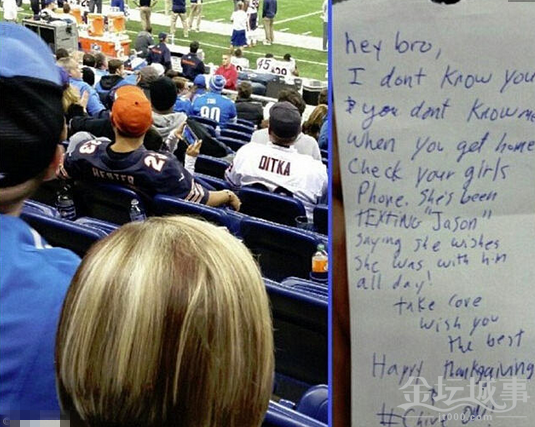 45
90
HESTER
23
DITKA
hey bro,
I dont know you
& you dont know me
when you get home
Check your girls
Phone. She's been
tEXTING "Jason"
Saying she wishes
she was with him
all day!
take care
wish you
the best
Happy thanksgiving
金坛城事